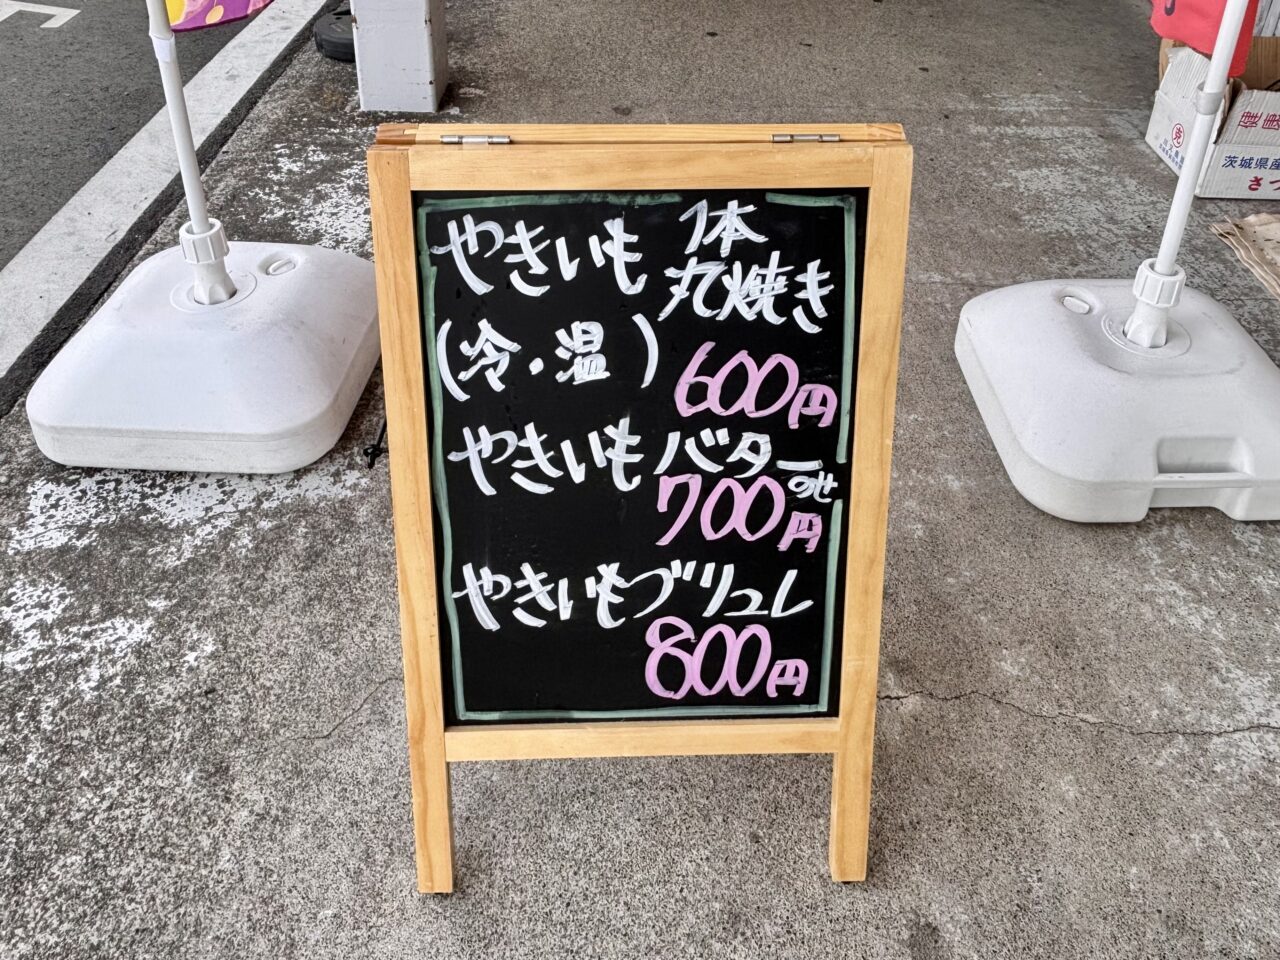 やきいも 1本
丸焼き
(冷・温) 600円
やきいもバターのせ
700円
やきいもブリュレ
800円
健康
茨城県産
さつ